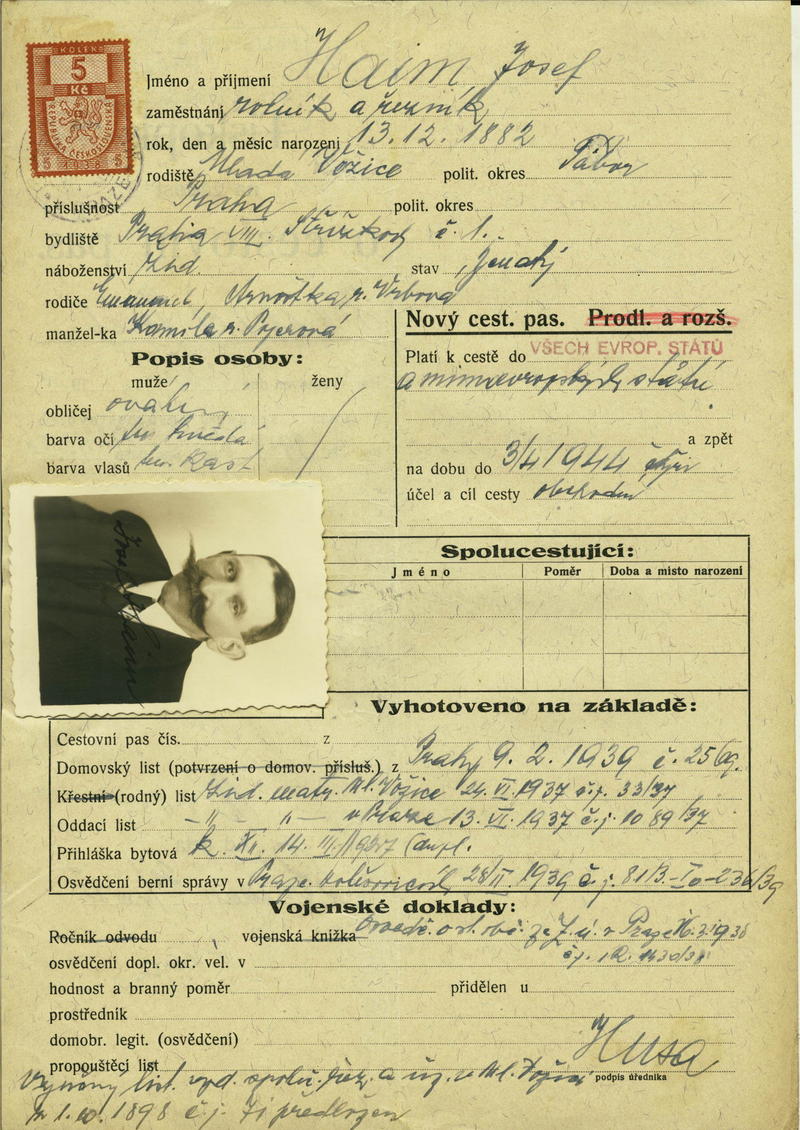 KOLEK
5
Kč
REPUBLIKA ČESKOSLOVENSKÁ
Jméno a příjmení Haim Josef
zaměstnání rolník a řezník
rok, den a měsíc narození 13. 12. 1882
rodiště Mladá Vožice polit. okres Tábor
příslušnost Praha polit. okres
bydliště Praha VIII. Střížkov č. 1.
náboženství žid. stav ženatý
rodiče Emanuel, Arnoštka r. Vrbova
manžel-ka Kamila r. Pojerová
Nový cest. pas. Prodl. a rozš.
Platí k cestě do VŠECH EVROP. STÁTŮ
a mimoevropských států
a zpět
na dobu do 3/4 1944
účel a cíl cesty obchodní
Popis osoby:
muže ženy
obličej oval
barva očí tm. hnědá
barva vlasů tm. kašt
Spolucestující:
Jméno Poměr Doba a místo narození
Vyhotoveno na základě:
Cestovní pas čís. z
Domovský list (potvrzení o domov. přísluš.) z Prahy 9. 2. 1939 č. 25/69.
Křestní (rodný) list žid. matr. Ml. Vožice 24. VI. 1937 č.j. 33/37
Oddací list -"- "- v Praze 13. VI. 1937 č.j. 1089/37
Přihláška bytová 14. III. 1937
Osvědčení berní správy v Praze 28/II. 1939 č.j. 81/3-
Vojenské doklady:
Ročník odvodu vojenská knižka Osvědč. o st. obč. z. ú. v Praze
č.j.
osvědčení dopl. okr. vel. v
hodnost a branný poměr přidělen u
prostředník
domobr. legit. (osvědčení)
propouštěcí list
Husa
podpis úředníka
Výuční list spol. řez. a uz. v Ml. Vožici
1898 č.j. 71 předložen